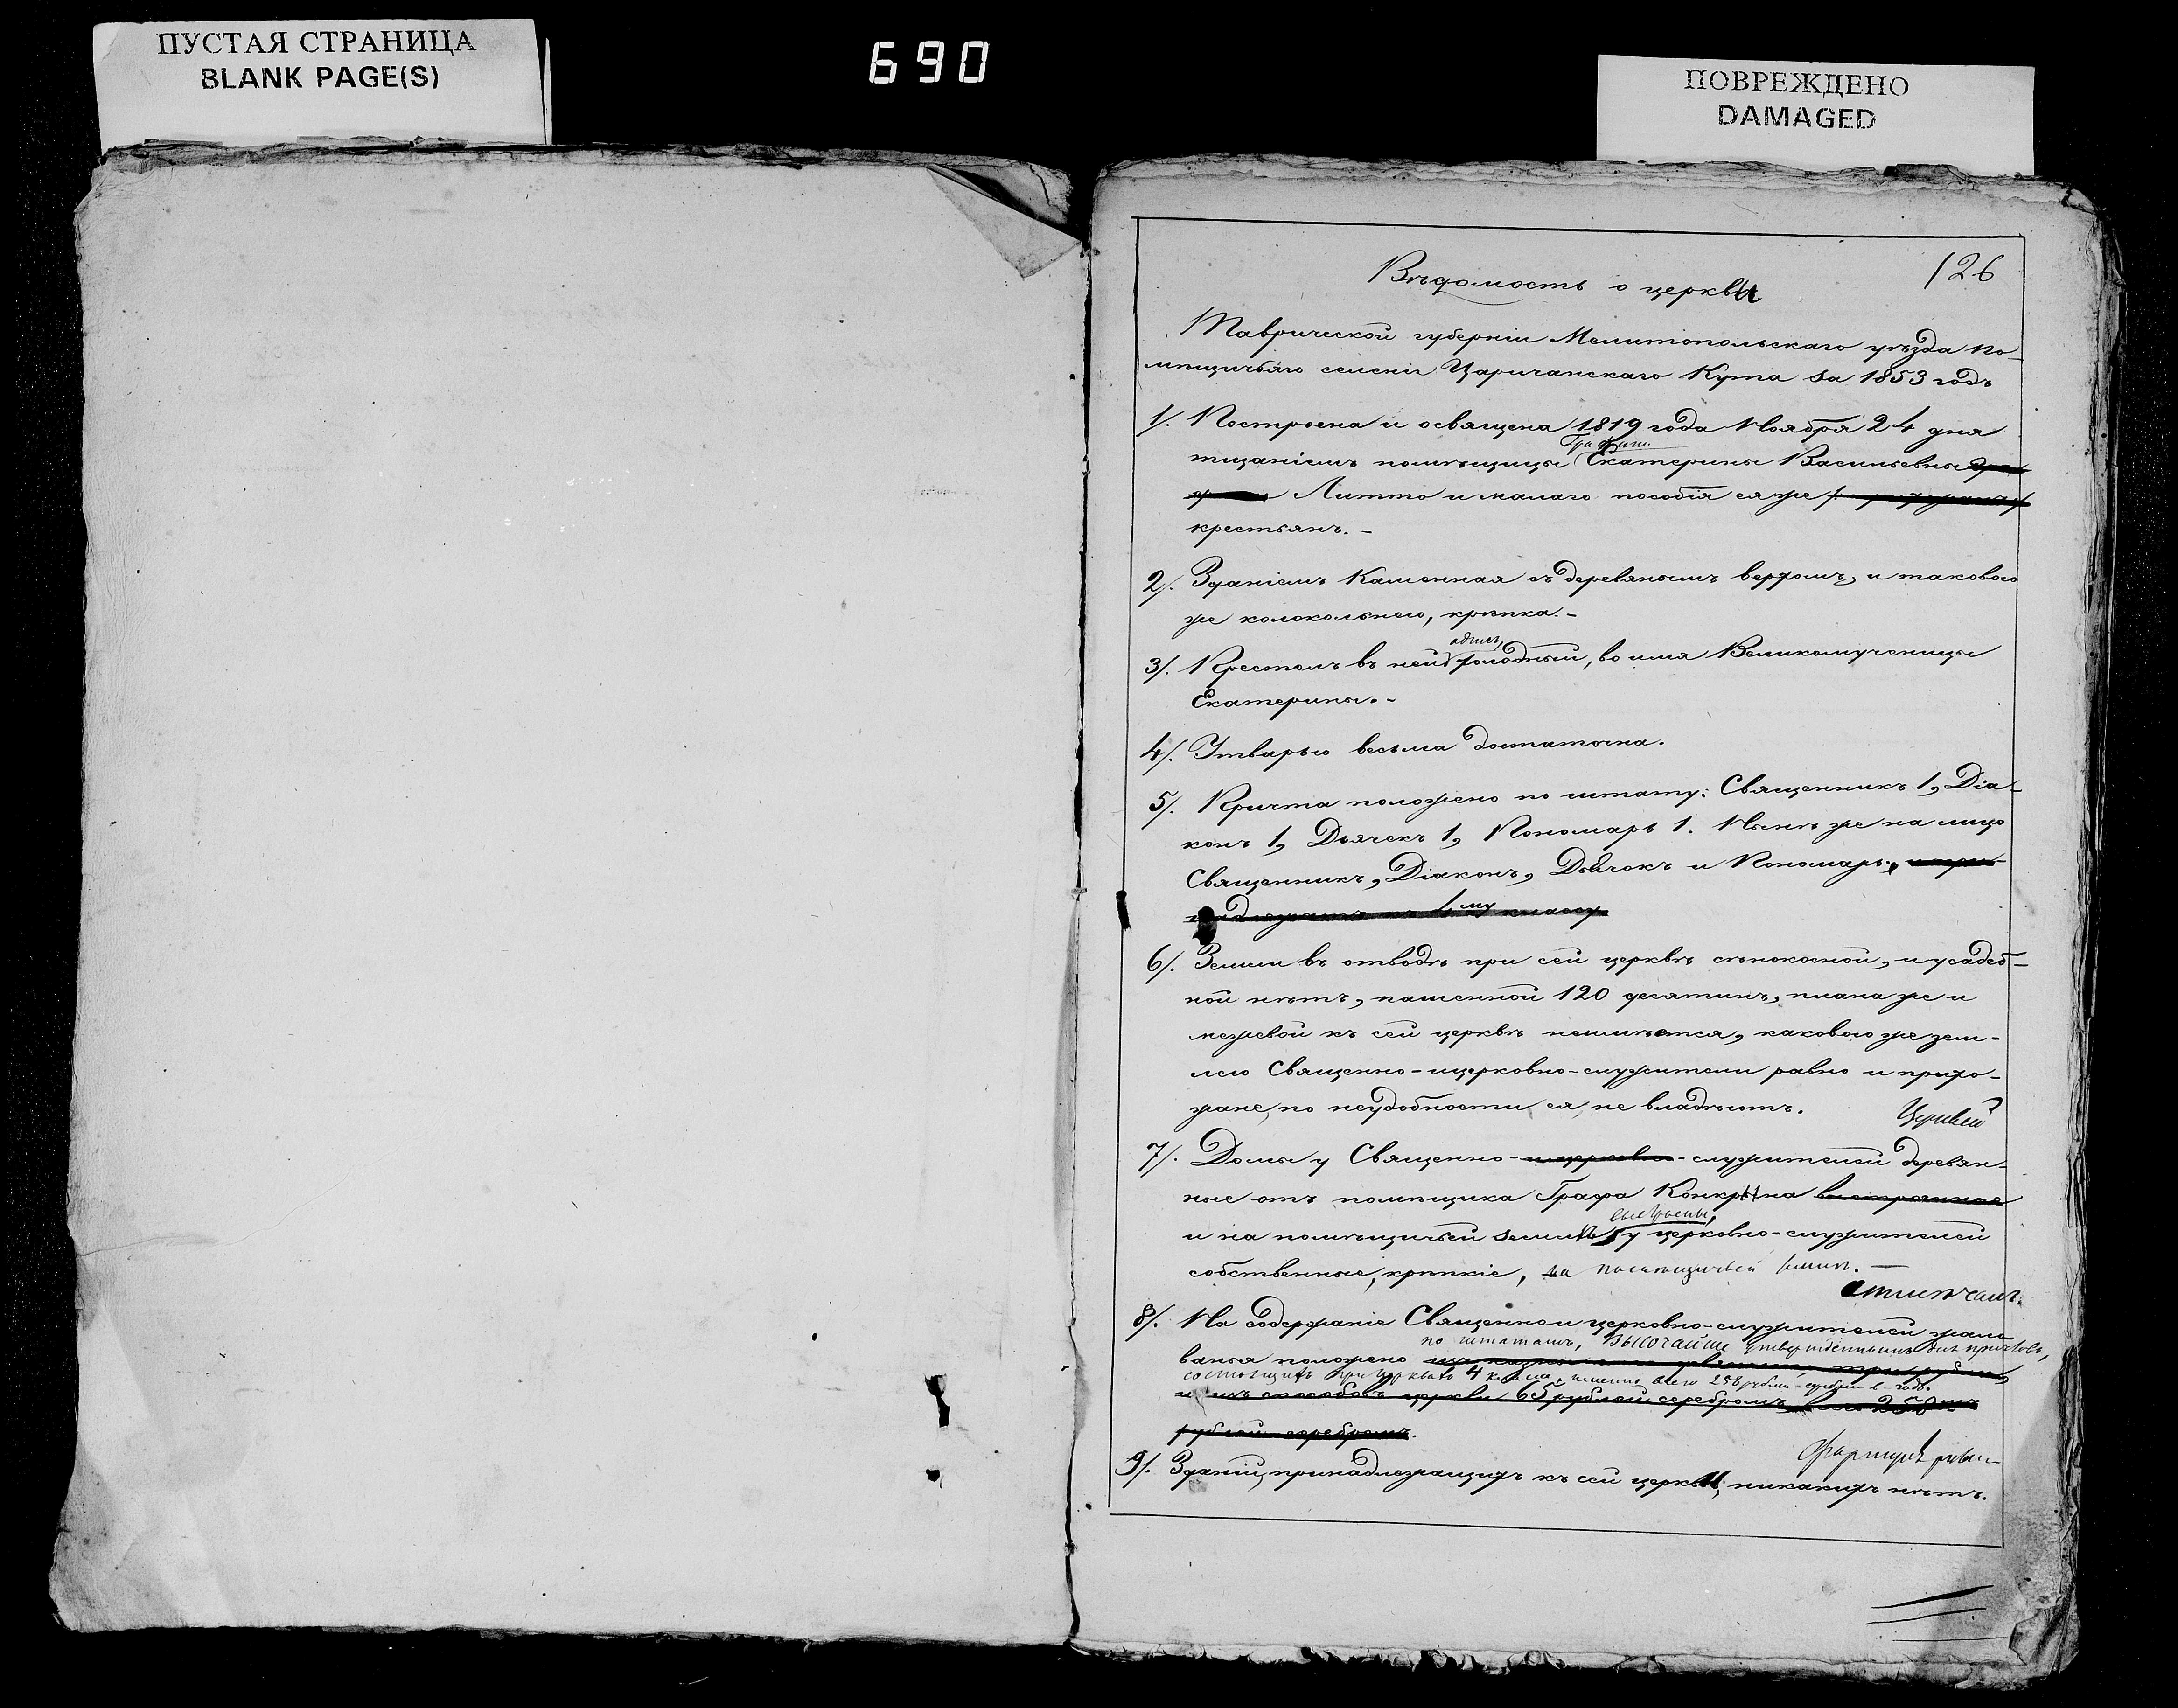 ПУСТАЯ СТРАНИЦА
BLANK PAGE(S)
690
ПОВРЕЖДЕНО
DAMAGED
126
Вѣдомость о церкви
Таврической губерніи Мелитопольскаго уѣзда по-
мѣщичьяго селенія Царичанскаго Кута за 1853 годъ
1/. Построена и освящена 1819 года Ноября 24 дня
Графини
тщаніемъ помѣщицы Екатерины Васильевны
Литто и малаго пособія ея же
крестьянъ. -
2/. Зданіемъ Каменная съ деревянымъ верхомъ, и таковою
же колокольнею, крѣпка. -
одинъ,
3/. Престолъ въ ней холодный, во имя Великомученицы
Екатерины. -
4/. Утварью весьма достаточна.
5/. Причта положено по штату: Священникъ 1, Діа-
конъ 1, Дьячекъ 1, Пономарь 1. Нынѣ же на лицо
Священникъ, Діаконъ, Дьячокъ и Пономарь,
къ 4му классу
6/. Земли въ отводѣ при сей церквѣ сѣнокосной, и усадеб-
ной нѣтъ, пашенной 120 десятинъ, плана же и
межевой къ сей церквѣ неимѣется, каковою же зем-
лею Священно-ицерковно-служители равно и прихо-
жане, по неудобности ея, не владѣютъ.
7/. Домы у Священно-ицерковно-служителей деревян-
ные отъ помѣщика Графа Канкрина выстроенные
выстроены,
и на помѣщичьей земли, у церковно-служителей
собственные, крѣпкіе, на помѣщичьей земли. -
8/. На содержаніе Священнои церковно-служителей жало
по штатамъ, Высочайше утвержденнымъ для причтовъ,
ванья положено
состоящихъ при церквахъ 4 класса, именно всего 258 рублей серебр. въ годъ.
и изъ способовъ церкви 65 рублей серебромъ всего 258
рублей серебромъ.
9/. Зданій, принадлежащихъ къ сей церкви, никакихъ нѣтъ.